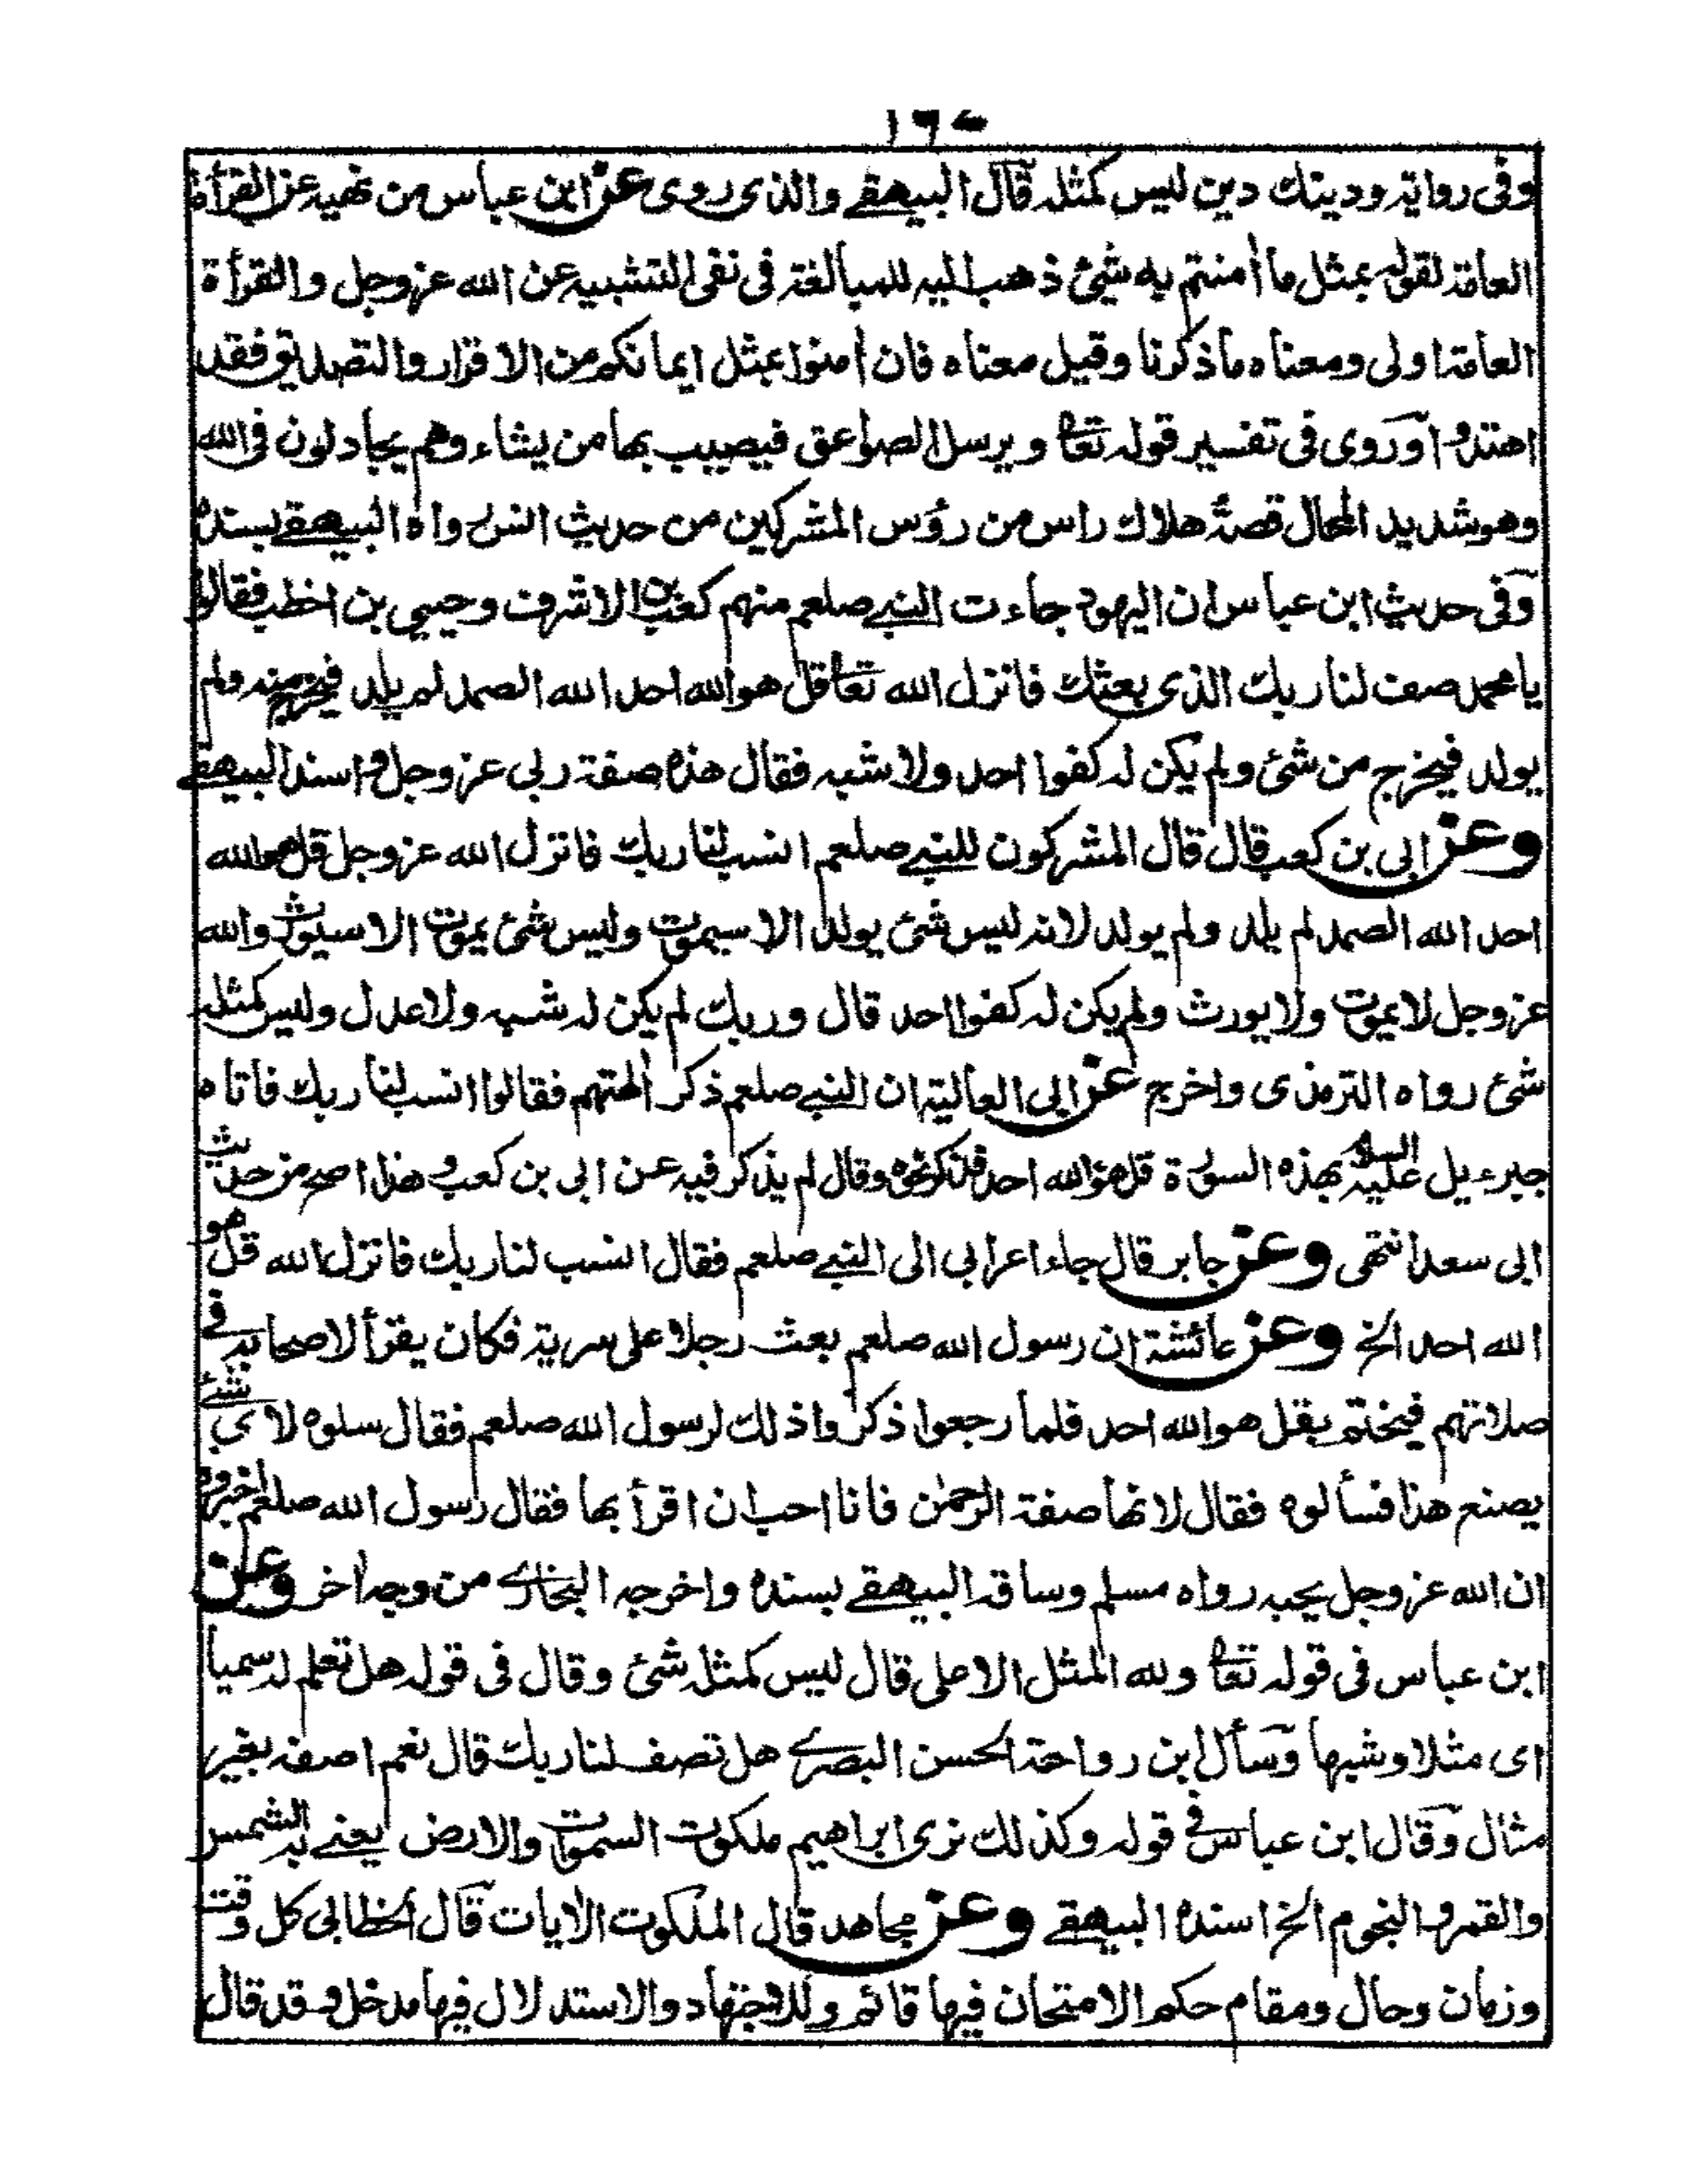 ١٦٧
وفى رواية ودينك دين ليس كمثله قال البيهقے والذى روى عن ابن عباس من نهيه عن القرأة
العامة لقوله بمثل ما أمنتم به شئ ذهب اليه للمبالغة فى نفى التشبيه عن الله عزوجل والقرأة
العامة اولى ومعناه ما ذكرنا وقيل معناه فان أمنوا بمثل ايمانكم من الاقرار والتصديق فقد
اهتدوا وروى فى تفسير قوله تعا ويرسل الصواعق فيصيب بها من يشاء وهم يجادلون فى الله
وهو شديد المحال قصة هلاك راس من رؤس المشركين من حديث انس رواه البيهقے بسنده
وفى حديث ابن عباس ان اليهود جاءت النبے صلعم منهم كعب بن الاشرف وحيي بن اخطب فقالوا
يا محمد صف لنا ربك الذى بعثك فانزل الله تعا قل هو الله احد الله الصمد لم يلد فيخرج منه ولم
يولد فيخرج من شئ ولم يكن له كفوا احد ولا شبه فقال هذه صفة ربى عزوجل واسند البيهقے
وعن ابى بن كعب قال قال المشركون للنبے صلعم انسب لنا ربك فانزل الله عزوجل قل هو الله
احد الله الصمد لم يلد ولم يولد لانه ليس شئ يولد الا سيموت وليس شئ يموت الا سيورث والله
عزوجل لا يموت ولا يورث ولم يكن له كفوا احد قال وربك لم يكن له شبه ولا عدل وليس كمثله
شئ رواه الترمذى واخرج عن ابى العالية ان النبے صلعم ذكر ألهتهم فقالوا انسب لنا ربك فاتاه
جبرءيل عليه السلام بهذه السورة قل هو الله احد فذكر نحوه وقال لم يذكر فيه عن ابى بن كعب وهذا اصح من حديث
ابى سعد انتهى وعن جابر قال جاء اعرابى الى النبے صلعم فقال انسب لنا ربك فانزل الله قل هو
الله احد الخ وعن عائشة ان رسول الله صلعم بعث رجلا على سرية فكان يقرأ لاصحابه فے
صلاتهم فيختم بقل هو الله احد فلما رجعوا ذكروا ذلك لرسول الله صلعم فقال سلوه لاى شئے
يصنع هذا فسألوه فقال لانها صفة الرحمٰن فانا احب ان اقرأ بها فقال رسول الله صلعم اخبروه
ان الله عزوجل يحبه رواه مسلم وساقه البيهقے بسنده واخرجه البخارے من وجه أخر وعن
ابن عباس فى قوله تعا ولله المثل الاعلى قال ليس كمثله شئ وقال فى قوله هل تعلم له سميا
اى مثلا وشبها وسأل ابن رواحة الحسن البصرے هل تصف لنا ربك قال نعم اصفه بغير
مثال وقال ابن عباس فے قوله وكذلك نرى ابراهيم ملكوت السموات والارض يعنے به الشمس
والقمر والنجوم الخ اسنده البيهقے وعن مجاهد قال الملكوت الأيات قال الخطابى كل وقت
وزمان وحال ومقام حكم الامتحان فيها قائم وللاجتهاد والاستدلال فيها مدخل وقد قال